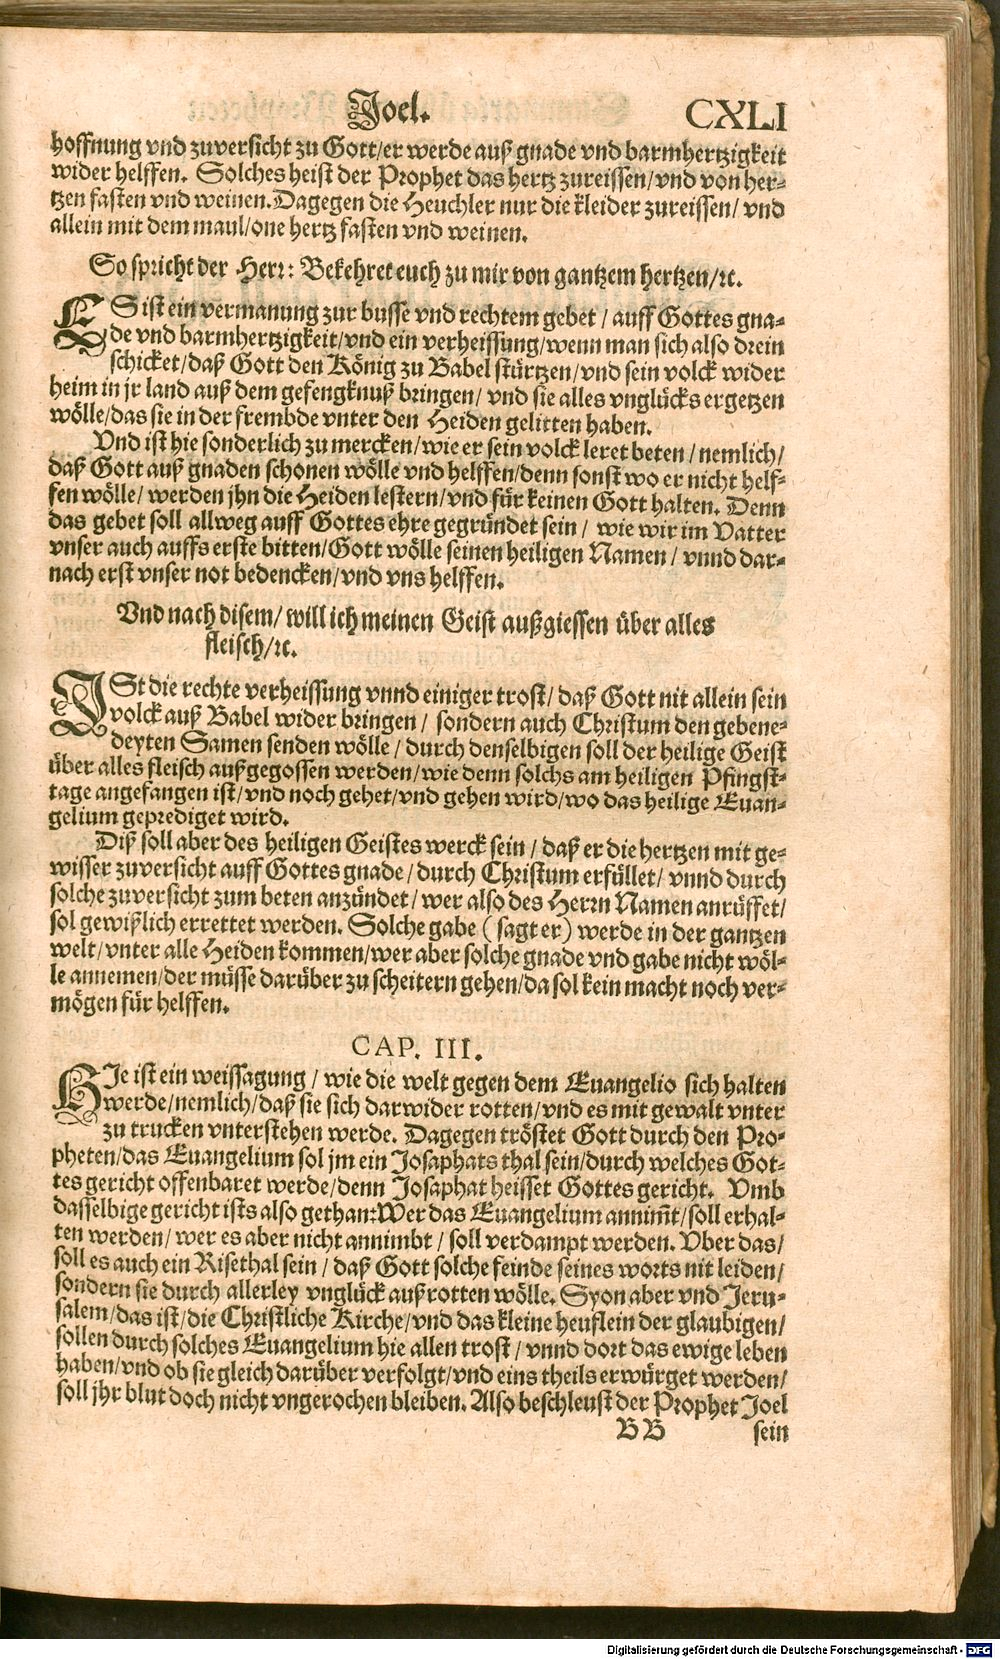 Joel. CXLI
hoffnung vnd zuversicht zu Gott/er werde auß gnade vnd barmhertzigkeit
wider helffen. Solches heist der Prophet das hertz zureissen/vnd von her-
tzen fasten vnd weinen. Dagegen die Heuchler nur die kleider zureissen/ vnd
allein mit dem maul/one hertz fasten vnd weinen.
So spricht der Herr: Bekehret euch zu mir von gantzem hertzen/ꝛc.
ES ist ein vermanung zur busse vnd rechtem gebet / auff Gottes gna-
de vnd barmhertzigkeit/vnd ein verheissung/wenn man sich also drein
schicket/daß Gott den König zu Babel stürtzen/vnd sein volck wider
heim in jr land auß dem gefengknuß bringen/ vnd sie alles vnglücks ergetzen
wölle/das sie in der frembde vnter den Heiden gelitten haben.
Vnd ist hie sonderlich zu mercken/wie er sein volck leret beten / nemlich/
daß Gott auß gnaden schonen wölle vnd helffen/denn sonst wo er nicht helf-
fen wölle/ werden jhn die Heiden lestern/vnd für keinen Gott halten. Denn
das gebet soll allweg auff Gottes ehre gegründet sein / wie wir im Vatter
vnser auch auffs erste bitten/Gott wölle seinen heiligen Namen / vnnd dar-
nach erst vnser not bedencken/vnd vns helffen.
Vnd nach disem/ will ich meinen Geist außgiessen über alles
fleisch/ꝛc.
ISt die rechte verheissung vnnd einiger trost/ daß Gott nit allein sein
volck auß Babel wider bringen / sondern auch Christum den gebene-
deyten Samen senden wölle / durch denselbigen soll der heilige Geist
über alles fleisch außgegossen werden/wie denn solchs am heiligen Pfingst-
tage angefangen ist/vnd noch gehet/vnd gehen wird/wo das heilige Euan-
gelium geprediget wird.
Diß soll aber des heiligen Geistes werck sein / daß er die hertzen mit ge-
wisser zuversicht auff Gottes gnade / durch Christum erfüllet/ vnnd durch
solche zuversicht zum beten anzündet/ wer also des Herrn Namen anrüffet/
sol gewißlich errettet werden. Solche gabe ( sagt er) werde in der gantzen
welt/vnter alle Heiden kommen/wer aber solche gnade vnd gabe nicht wöl-
le annemen/der müsse darüber zu scheitern gehen/da sol kein macht noch ver-
mögen für helffen.
CAP. III.
HJe ist ein weissagung / wie die welt gegen dem Euangelio sich halten
werde/nemlich/daß sie sich darwider rotten/vnd es mit gewalt vnter
zu trucken vnterstehen werde. Dagegen tröstet Gott durch den Pro-
pheten/das Euangelium sol jm ein Josaphats thal sein/durch welches Got-
tes gericht offenbaret werde/denn Josaphat heisset Gottes gericht. Vmb
dasselbige gericht ists also gethan: Wer das Euangelium annim̃t/soll erhal-
ten werden/ wer es aber nicht annimbt / soll verdampt werden. Vber das/
soll es auch ein Risethal sein / daß Gott solche feinde seines worts nit leiden/
sondern sie durch allerley vnglück außrotten wölle. Syon aber vnd Jeru-
salem/das ist/die Christliche Kirche/vnd das kleine heuflein der glaubigen/
sollen durch solches Euangelium hie allen trost / vnnd dort das ewige leben
haben/vnd ob sie gleich darüber verfolgt/vnd eins theils erwürget werden/
soll jhr blut doch nicht vngerochen bleiben. Also beschleust der Prophet Joel
BB sein
Digitalisierung gefördert durch die Deutsche Forschungsgemeinschaft - DFG